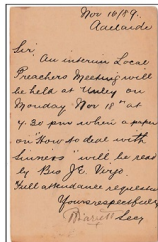 Nov 16/89.
Adelaide
Sir
An interim Local
Preachers Meeting will
be held at Unley on
Monday Nov 18th at
4.30 pm when a paper
on "How to deal with
" will be read
by Bro J.E.
Full attendance requested
Yours respectfully
Secy